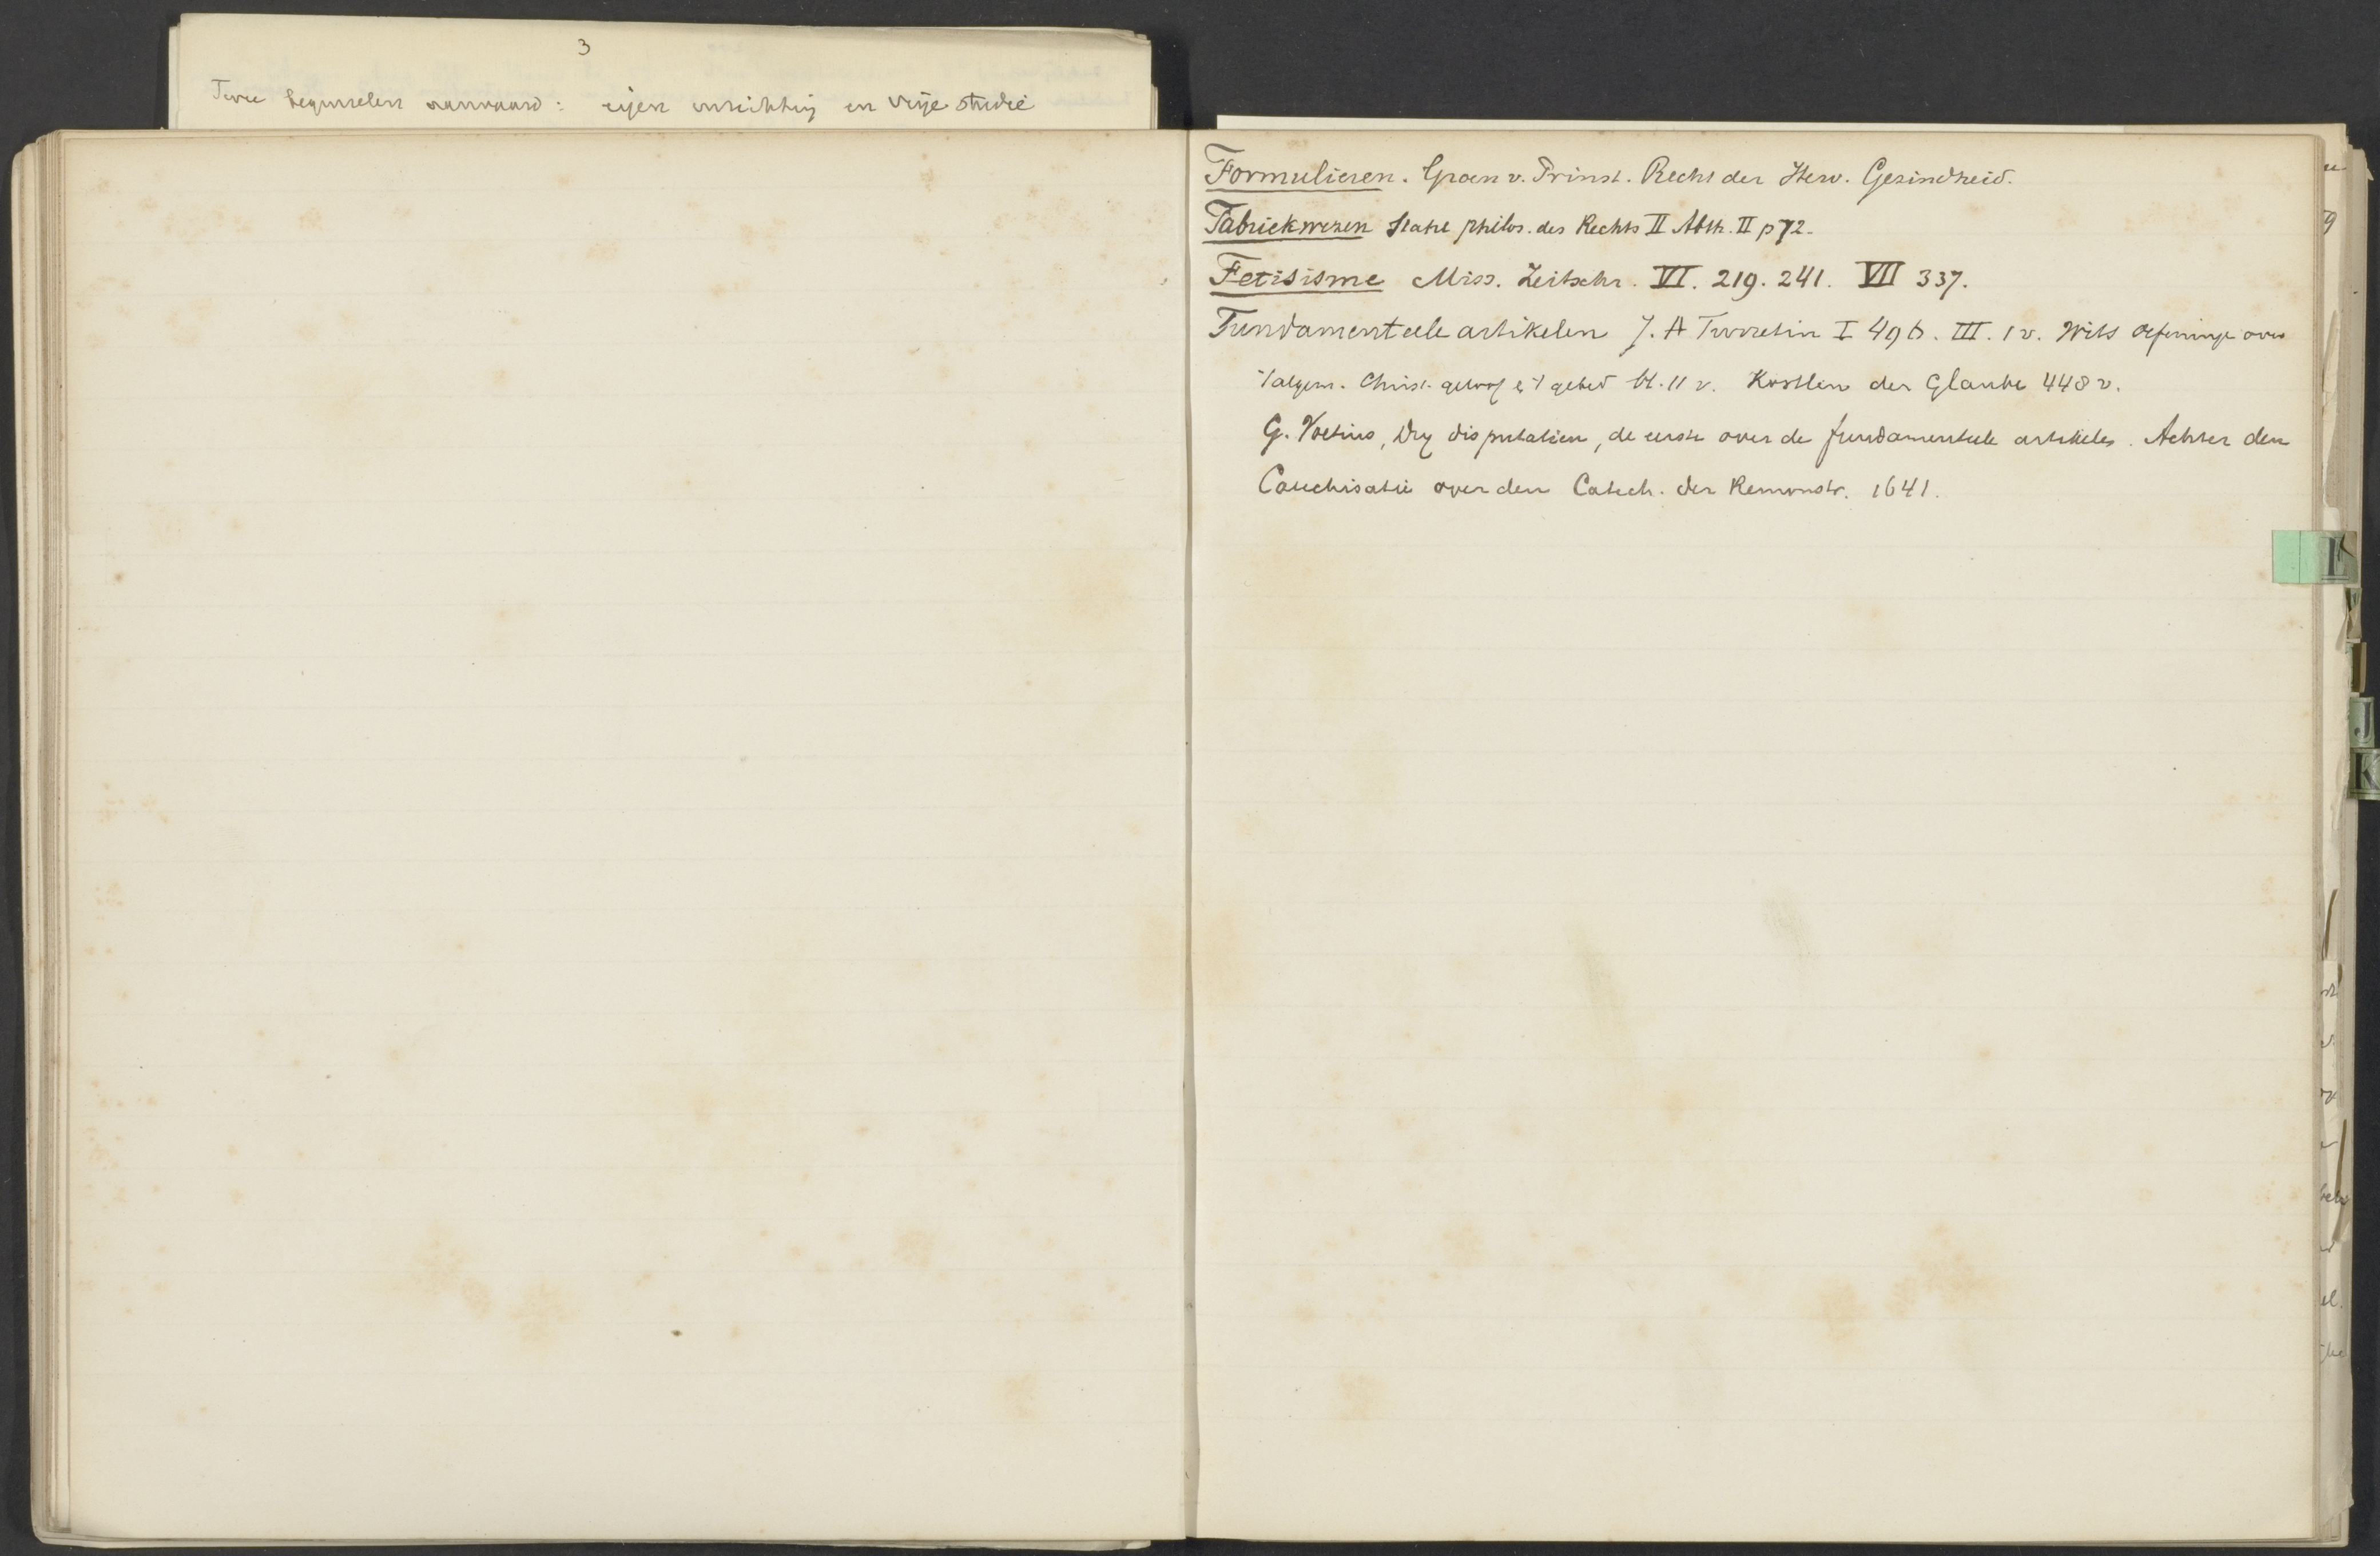 3
Twee beginselen aanvaard: eigen inrichting en vrije studie
Formulieren. Groen v. Prinst. Recht der Herv. Gezindheid.
Fabriekwezen Stahl philos. des Rechts II Abth. II p 72.
Fetisisme Miss. Zeitschr. VI. 219. 241. VII 337.
Fundamenteele artikelen J. A Turretin I 496. III. 1 v. Wits oefeninge over
't algem. Christ. geloof & 't gebed bl. 11 v. Köstlin der Glaube 448 v.
G. Voetius, Dry disputatien, de eerste over de fundamenteele artikelen. Achter den
Catechisatie over den Catech. der Remonstr. 1641.
E
J
K